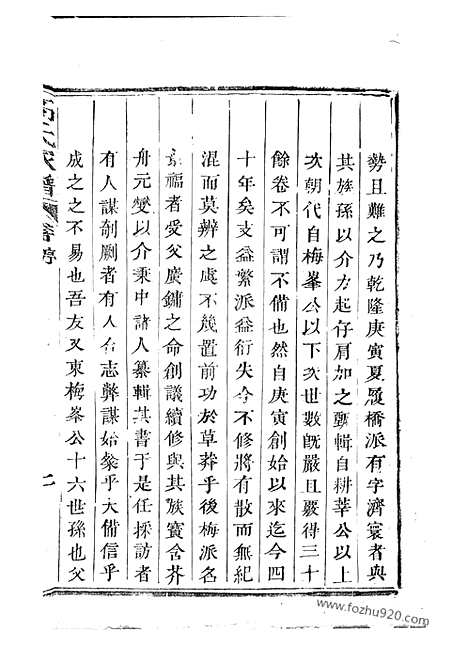 勢且難之乃乾隆庚寅夏履橋派有字濟寰者與
其族孫以介力起仔肩加之甄輯自耕莘公以上
次朝代自梅峯公以下次世數旣嚴且覈得三十
餘卷不可謂不備也然自庚寅創始以來迄今四
十年矣支益繁派益衍失今不修將有散而無紀
混而莫辨之虞不幾置前功於草莽乎後梅派名
福者受父廣鏞之命創議續修與其族賓舍芥
舟元燮以介秉中諸人纂輯其書于是任採訪者
有人謀剞劂者有人合志弊謀始象乎大備信乎
成之之不易也吾友又東梅峯公十六世孫也父
氏家譜 序 二
www.fozhu920.com